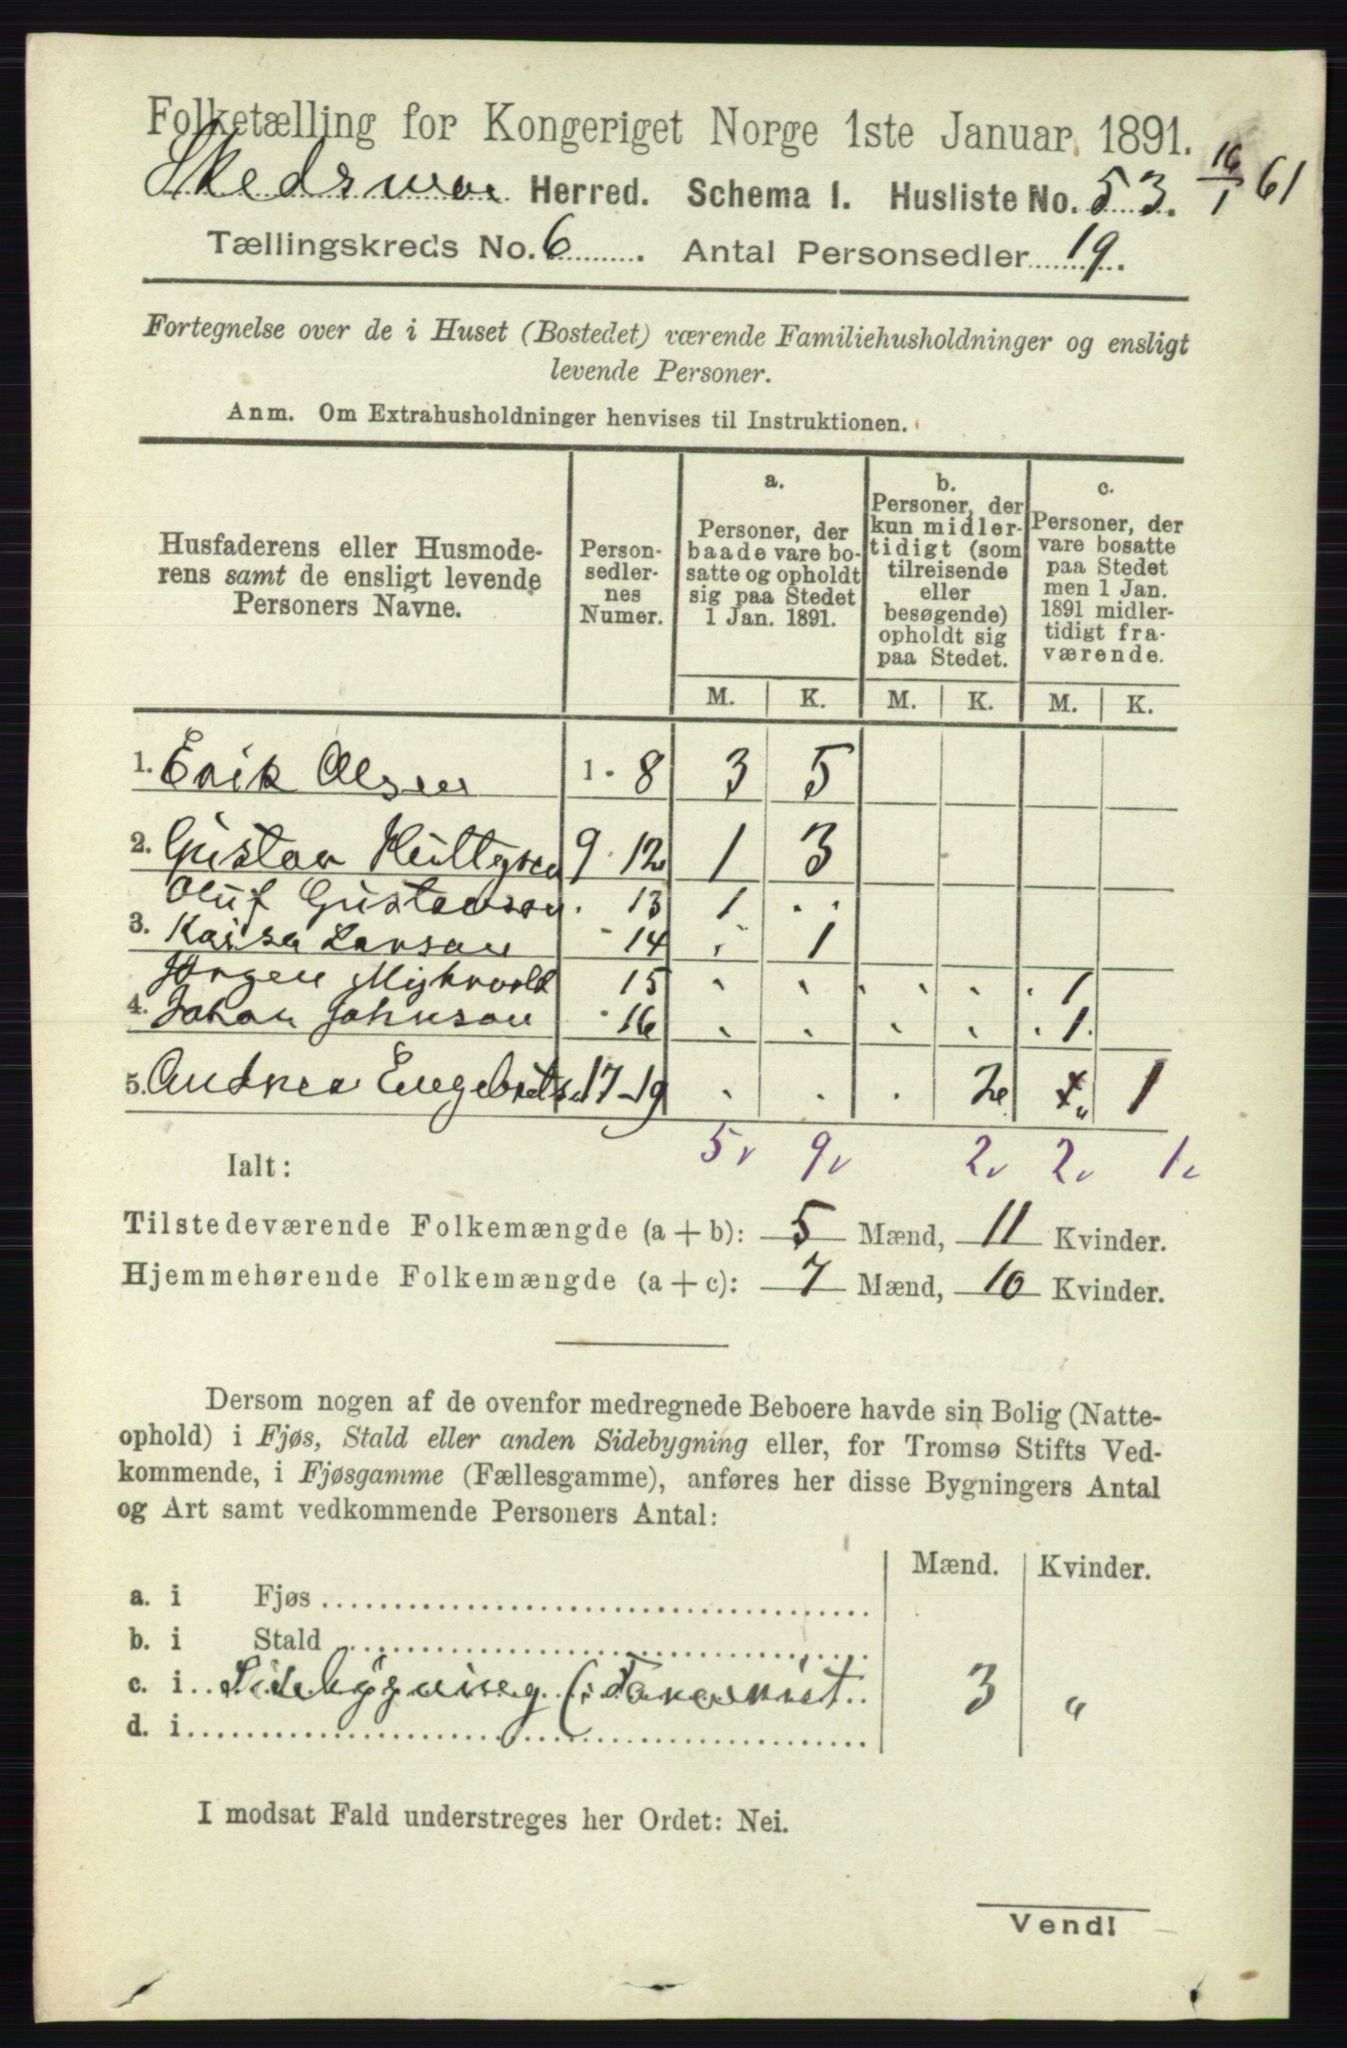 Folketælling for Kongeriget Norge 1ste Januar 1891.
Skedsmoe Herred. Schema I. Husliste No. 53. 16/1 61
Tællingskreds No. 6. Antal Personsedler 19.
Fortegnelse over de i Huset (Bostedet) værende Familiehusholdninger og ensligt
levende Personer.
Anm. Om Extrahusholdninger henvises til Instruktionen.
Husfaderens eller Husmode-
rens samt de ensligt levende
Personers Navne.
Person-
sedler-
nes
Numer.
a.
Personer, der
baade vare bo-
satte og opholdt
sig paa Stedet
1 Jan. 1891.
b.
Personer, der
kun midler-
tidigt (som
tilreisende
eller
besøgende)
opholdt sig
paa Stedet.
c.
Personer, der
vare bosatte
paa Stedet
men 1 Jan.
1891 midler-
tidigt fra-
værende.
M. K. M. K. M. K.
1. Erik Olsen 1 - 8 3 5
2. Gustav 9 - 12 1 3
Oluf Gustavson 13 1 . .
3. Kaisa Larson 14 . 1
Jørgen Myhrvold 15 . . . . . 1
4. Johan Johnson 16 . . . . . 1
5. Andrea Engebrets 17-19 . . . 2 " 1
Ialt: 5 9 2 2 1
Tilstedeværende Folkemængde (a + b): 5 Mænd, 11 Kvinder.
Hjemmehørende Folkemængde (a + c): 7 Mænd, 10 Kvinder.
Dersom nogen af de ovenfor medregnede Beboere havde sin Bolig (Natte-
ophold) i Fjøs, Stald eller anden Sidebygning eller, for Tromsø Stifts Ved-
kommende, i Fjøsgamme (Fællesgamme), anføres her disse Bygningers Antal
og Art samt vedkommende Personers Antal:
Mænd. Kvinder.
a. i Fjøs
b. i Stald
c. i Sidebygning 3 "
d. i
I modsat Fald understreges her Ordet: Nei.
Vend!